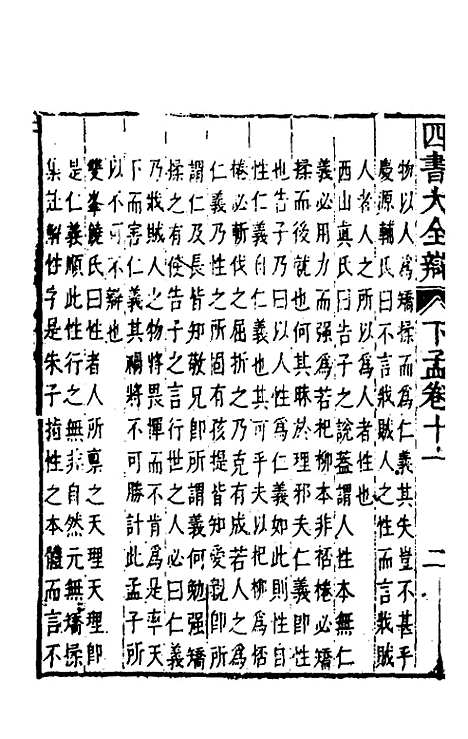 四書大全辯 下孟卷十一 二
物以人爲矯揉而爲仁義其失豈不甚乎
慶源輔氏曰不言戕賊人之性而言戕賊
人者人之所以爲人者性也
西山眞氏曰告子之說蓋謂人性本無仁
義必用力而强爲若杞柳本非桮棬必矯
揉而後就也何其昧於理邪夫仁義即性
也告子乃曰以人性爲仁義如此則性自
性仁義自仁義也其可乎夫以杞柳爲桮
棬必斬伐之屈折之乃克有成若人之爲
仁義乃性之所固有孩提皆知愛親即所
謂仁及長皆知敬兄即所謂義何勉强矯
揉之有使告子之言行世之人必曰仁義
乃戕賊人之物將畏憚而不肯爲是率天
下而害仁義其禍將不可勝計此孟子所
以不可不辯也
雙峯饒氏曰性者人所禀之天理天理即
是仁義順此性行之無非自然元無矯揉
集註解性字是朱子指性之本體而言不